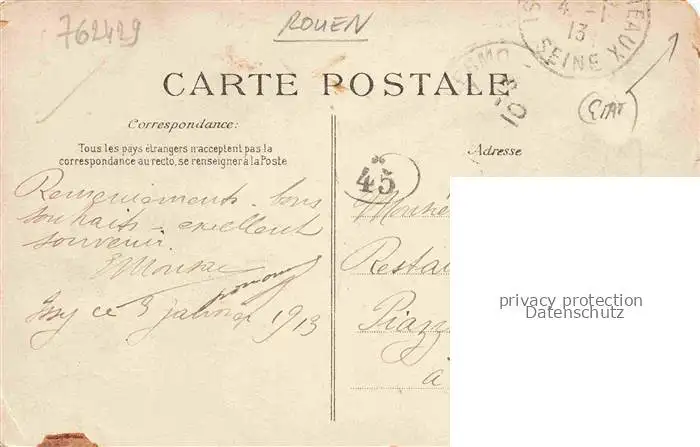 762429
ROUEN
4 -1
13
SEINE
EAUX
CARTE POSTALE
Correspondance:
Tous les pays étrangers n'acceptent pas la
correspondance au recto, se renseigner à la Poste
Adresse
45
Remerciements - bons
souhaits - excellent
souvenir.
Issy ce 3 janvier 1913
Restau
Piazz
à
privacy protection
Datenschutz